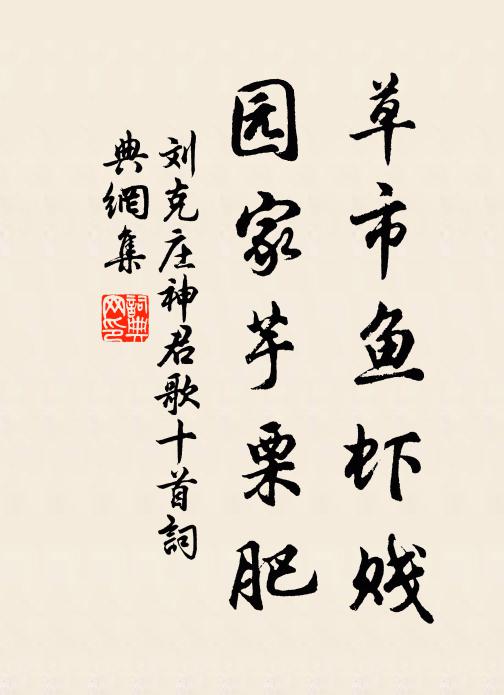 草市鱼虾贱
园家芋栗肥
刘克庄神君歌十首詞
典網集
詞典
网印